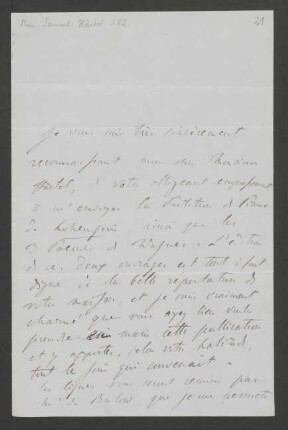 21
Je vous suis très sincèrement
reconnaissant mon cher Monsieur
Härtel, de votre obligeant empressement
à m'envoyer la Partition de Piano
de Lohengrin, ainsi que les
3 Poemes de Wagner. L'édition
de ces deux ouvrages est tout à fait
digne de la belle réputation de
votre maison et je suis vraiment
charmé que vous ayez bien voulu
prendre en main cette publication
et y apporter, selon votre habitude,
tout le soin qui convenait.
Ces lignes vous seront remises par
Mr de Bulow, que je me permets